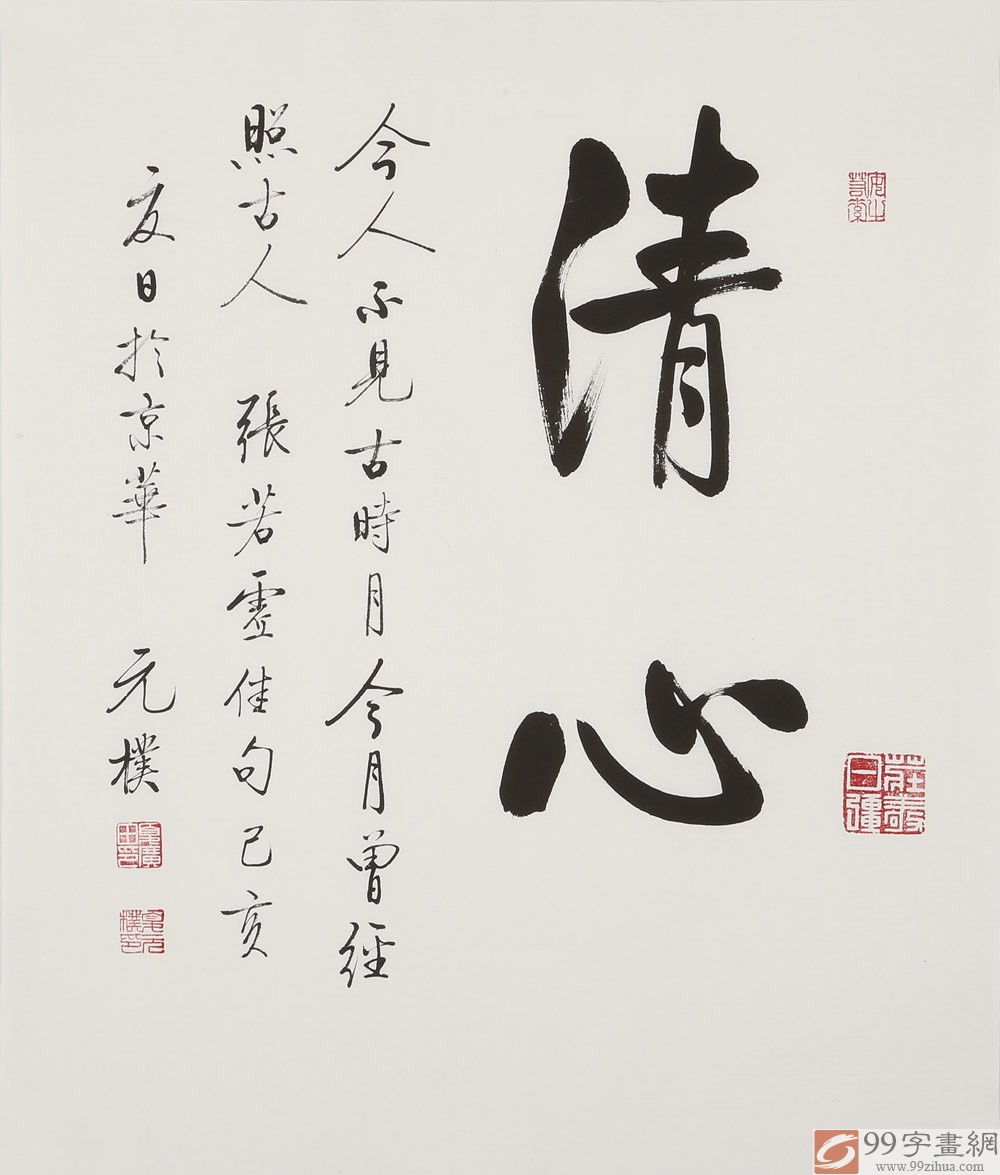 安之若素
清心
莊敬日強
今人不見古時月今月曾經
照古人 張若虛佳句己亥
夏日於京華 元樸
99字畫網
www.99zihua.com